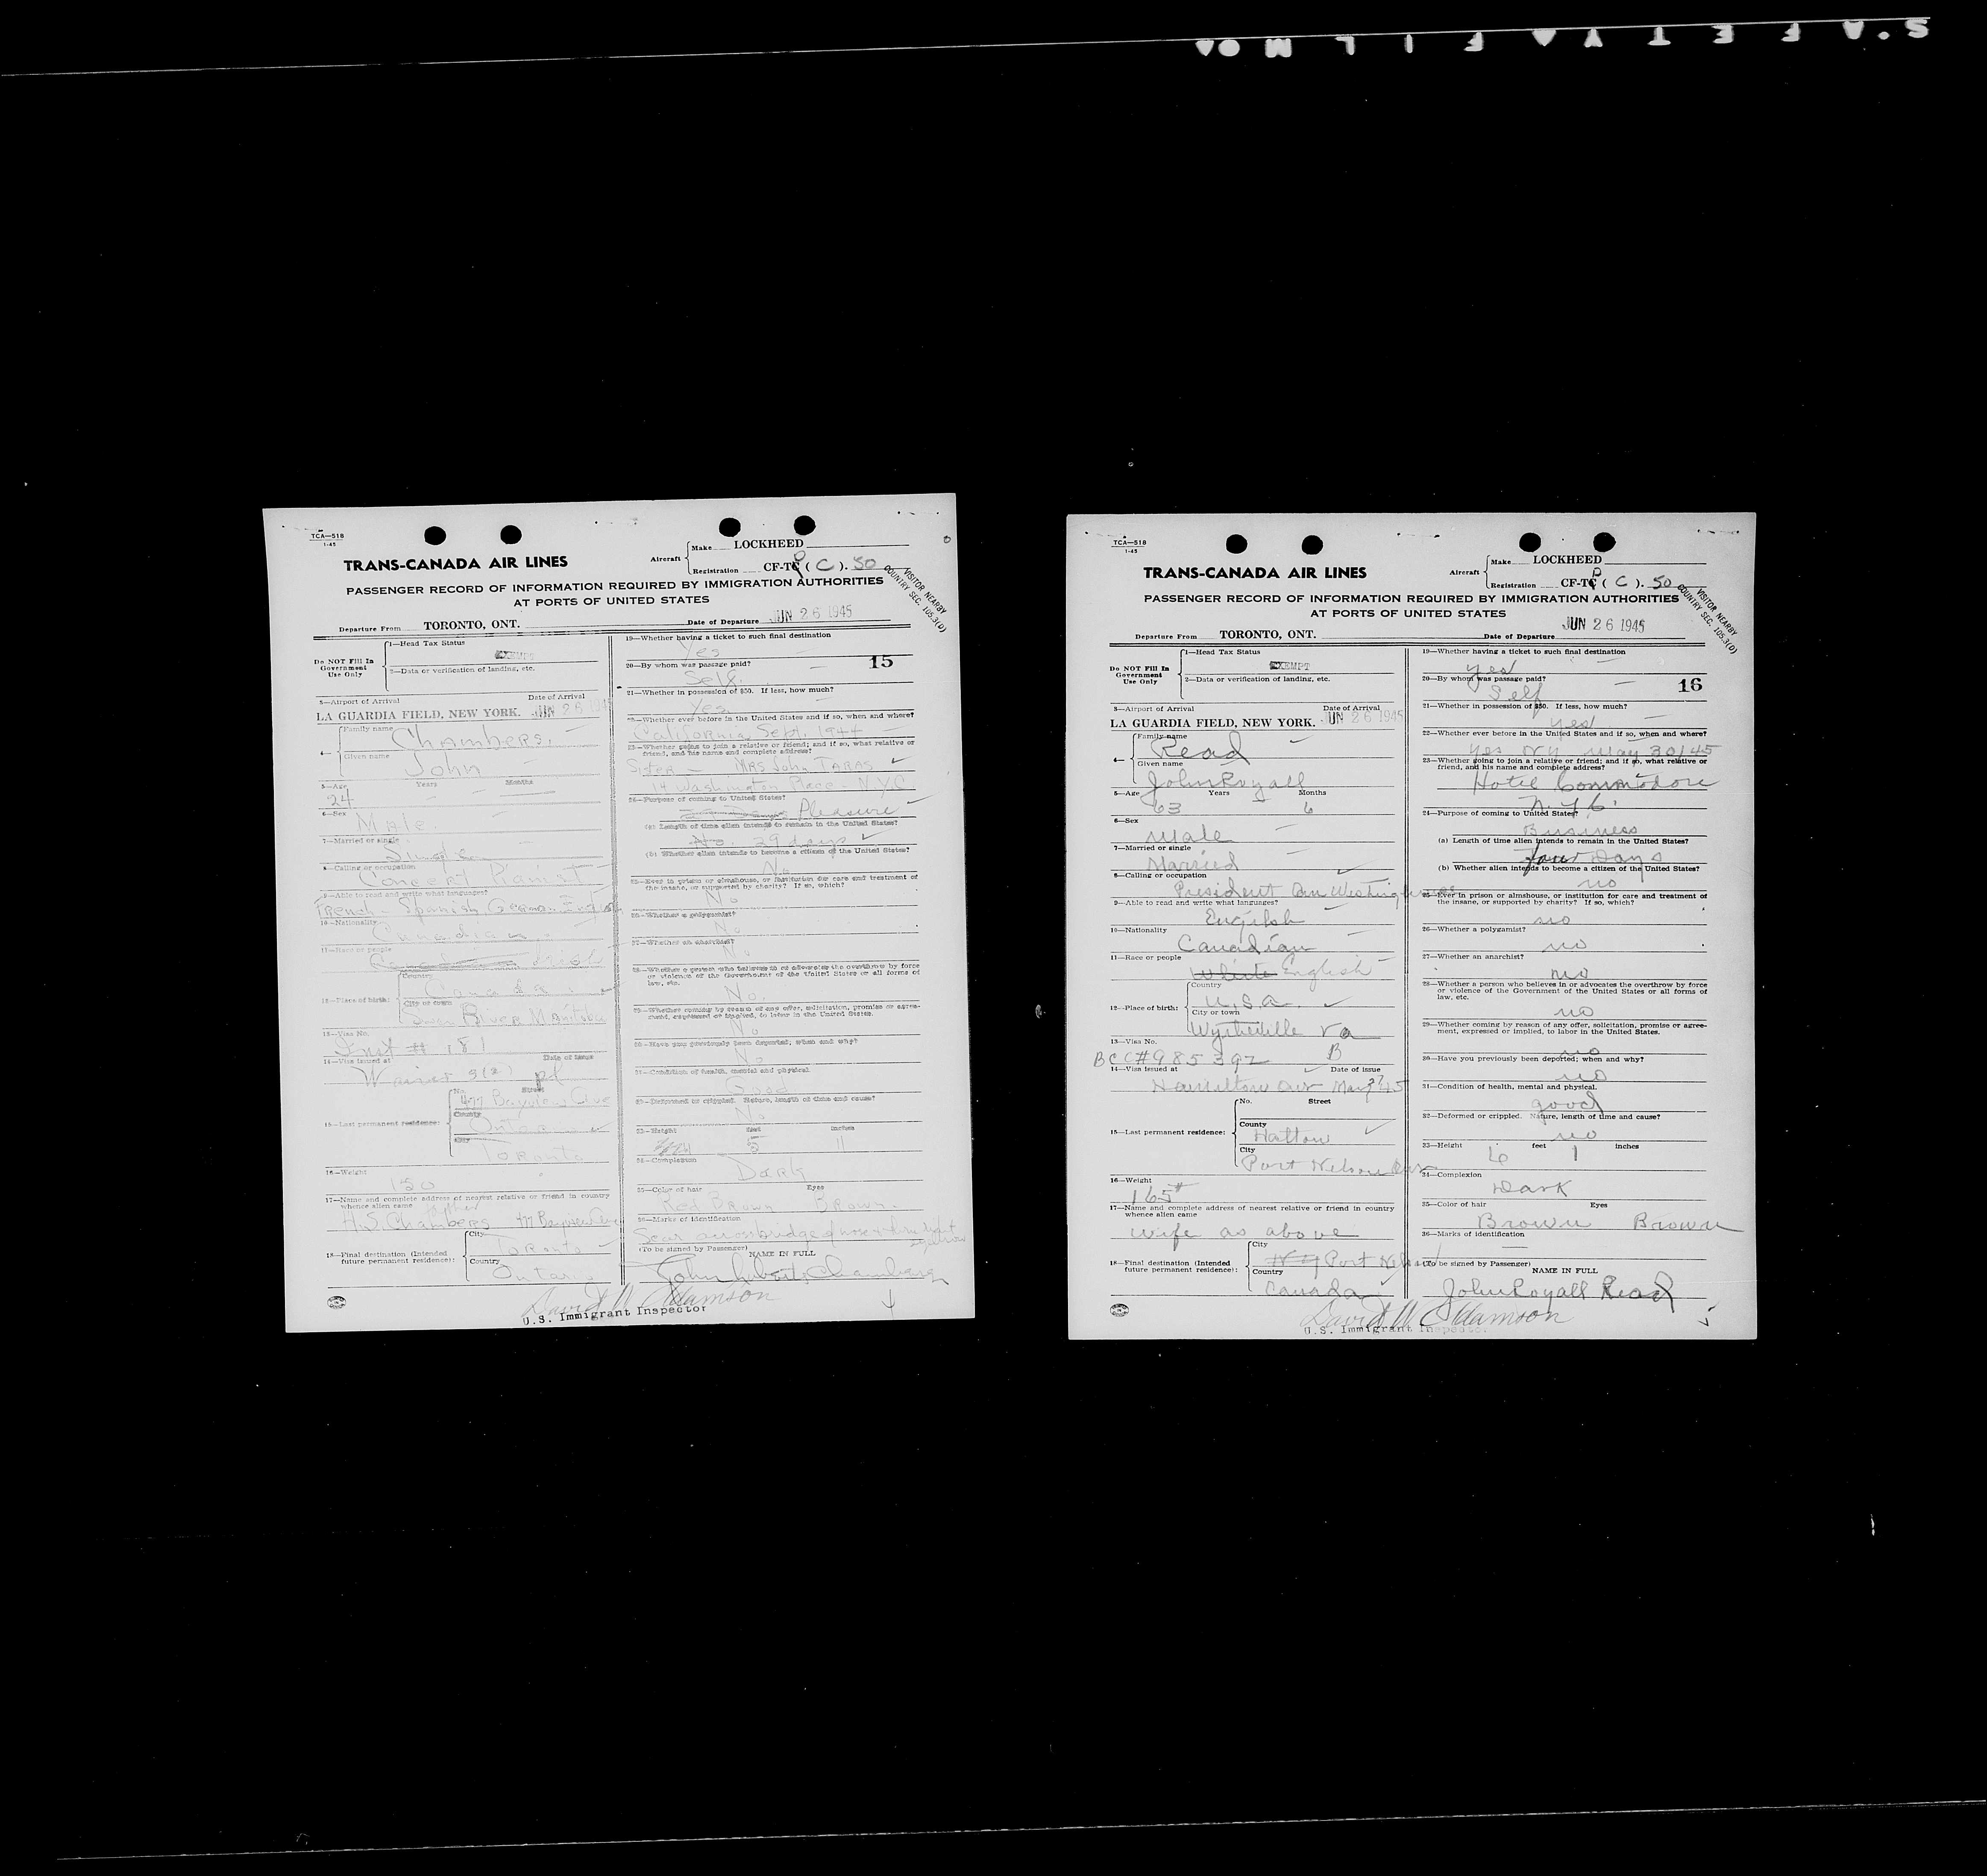 SAFETY FILM
TCA—518
1-45
TRANS-CANADA AIR LINES
Aircraft
Make LOCKHEED
Registration CF-TC ( C ). 50
PASSENGER RECORD OF INFORMATION REQUIRED BY IMMIGRATION AUTHORITIES
AT PORTS OF UNITED STATES
VISITOR NEARBY
COUNTRY SEC. 105.3(D)
Departure From TORONTO, ONT.
Date of Departure JUN 26 1945
Do NOT Fill In
Government
Use Only
1—Head Tax Status
EXEMPT
2—Data or verification of landing, etc.
3—Airport of Arrival Date of Arrival
LA GUARDIA FIELD, NEW YORK. JUN 26 1945
4—
Family name
Chambers.
Given name
John
5—Age Years Months
24
6—Sex
Male
7—Married or single
Single
8—Calling or occupation
Concert Pianist
9—Able to read and write what languages?
French - Spanish German English
10—Nationality
Canadian
11—Race or people
Irish
12—Place of birth:
Country
Canada
City or town
Swan River Manitoba
13—Visa No.
# 181
14—Visa issued at Date of issue
Waiver 3(2)
15—Last permanent residence:
No. Street
477 Bayview Ave
County
Ontario
City
Toronto
16—Weight
150
17—Name and complete address of nearest relative or friend in country
whence alien came
father
H.S. Chambers 477 Bayview Ave
18—Final destination (Intended
future permanent residence):
City
Toronto
Country
Ontario
19—Whether having a ticket to such final destination
Yes
20—By whom was passage paid?
Self.
15
21—Whether in possession of $50. If less, how much?
Yes
22—Whether ever before in the United States and if so, when and where?
California Sept. 1944
23—Whether going to join a relative or friend; and if so, what relative or
friend, and his name and complete address?
Sister - Mrs John Taras
14 Washington Place - NYC
24—Purpose of coming to United States?
Pleasure
(a) Length of time alien intends to remain in the United States?
No. 29 days
(b) Whether alien intends to become a citizen of the United States?
No
25—Ever in prison or almshouse, or institution for care and treatment of
the insane, or supported by charity? If so, which?
No
26—Whether a polygamist?
No
27—Whether an anarchist?
No
28—Whether a person who believes in or advocates the overthrow by force
or violence of the Government of the United States or all forms of
law, etc.
No.
29—Whether coming by reason of any offer, solicitation, promise or agree-
ment, expressed or implied, to labor in the United States.
No
30—Have you previously been deported; when and why?
No
31—Condition of health, mental and physical.
Good
32—Deformed or crippled. Nature, length of time and cause?
No
33—Height feet inches
5 11
34—Complexion
Dark
35—Color of hair Eyes
Red Brown Brown.
36—Marks of identification
Scar across bridge of nose right
eyebrow
(To be signed by Passenger)
NAME IN FULL
John Chambers
David W. Adamson
U.S. Immigrant Inspector
TCA—518
1-45
TRANS-CANADA AIR LINES
Aircraft
Make LOCKHEED
Registration CF-TC ( C ). 50
PASSENGER RECORD OF INFORMATION REQUIRED BY IMMIGRATION AUTHORITIES
AT PORTS OF UNITED STATES
VISITOR NEARBY
COUNTRY SEC. 105.3(D)
Departure From TORONTO, ONT.
Date of Departure JUN 26 1945
Do NOT Fill In
Government
Use Only
1—Head Tax Status
EXEMPT
2—Data or verification of landing, etc.
3—Airport of Arrival Date of Arrival
LA GUARDIA FIELD, NEW YORK. JUN 26 1945
4—
Family name
Read
Given name
John Royall
5—Age Years Months
63 6
6—Sex
Male
7—Married or single
Married
8—Calling or occupation
President Can Westinghouse
9—Able to read and write what languages?
English
10—Nationality
Canadian
11—Race or people
White English
12—Place of birth:
Country
U.S.A.
City or town
Wytheville Va
13—Visa No.
BCC#985392 B
14—Visa issued at Date of issue
Hamilton Ont Mar 27/45
15—Last permanent residence:
No. Street
County
Halton
City
Port Nelson Ont
16—Weight
165#
17—Name and complete address of nearest relative or friend in country
whence alien came
wife as above
18—Final destination (Intended
future permanent residence):
City
N Y Port Nelson
Country
Canada
19—Whether having a ticket to such final destination
yes
20—By whom was passage paid?
Self
16
21—Whether in possession of $50. If less, how much?
yes
22—Whether ever before in the United States and if so, when and where?
yes NY May 30/45
23—Whether going to join a relative or friend; and if so, what relative or
friend, and his name and complete address?
Hotel Commodore
N.Y.C.
24—Purpose of coming to United States?
Business
(a) Length of time alien intends to remain in the United States?
four Days
(b) Whether alien intends to become a citizen of the United States?
no
25—Ever in prison or almshouse, or institution for care and treatment of
the insane, or supported by charity? If so, which?
no
26—Whether a polygamist?
no
27—Whether an anarchist?
no
28—Whether a person who believes in or advocates the overthrow by force
or violence of the Government of the United States or all forms of
law, etc.
no
29—Whether coming by reason of any offer, solicitation, promise or agree-
ment, expressed or implied, to labor in the United States.
no
30—Have you previously been deported; when and why?
no
31—Condition of health, mental and physical.
good
32—Deformed or crippled. Nature, length of time and cause?
no
33—Height feet inches
6 1
34—Complexion
Dark
35—Color of hair Eyes
Brown Brown
36—Marks of identification
(To be signed by Passenger)
NAME IN FULL
John Royall Read
David W. Adamson
U.S. Immigrant Inspector